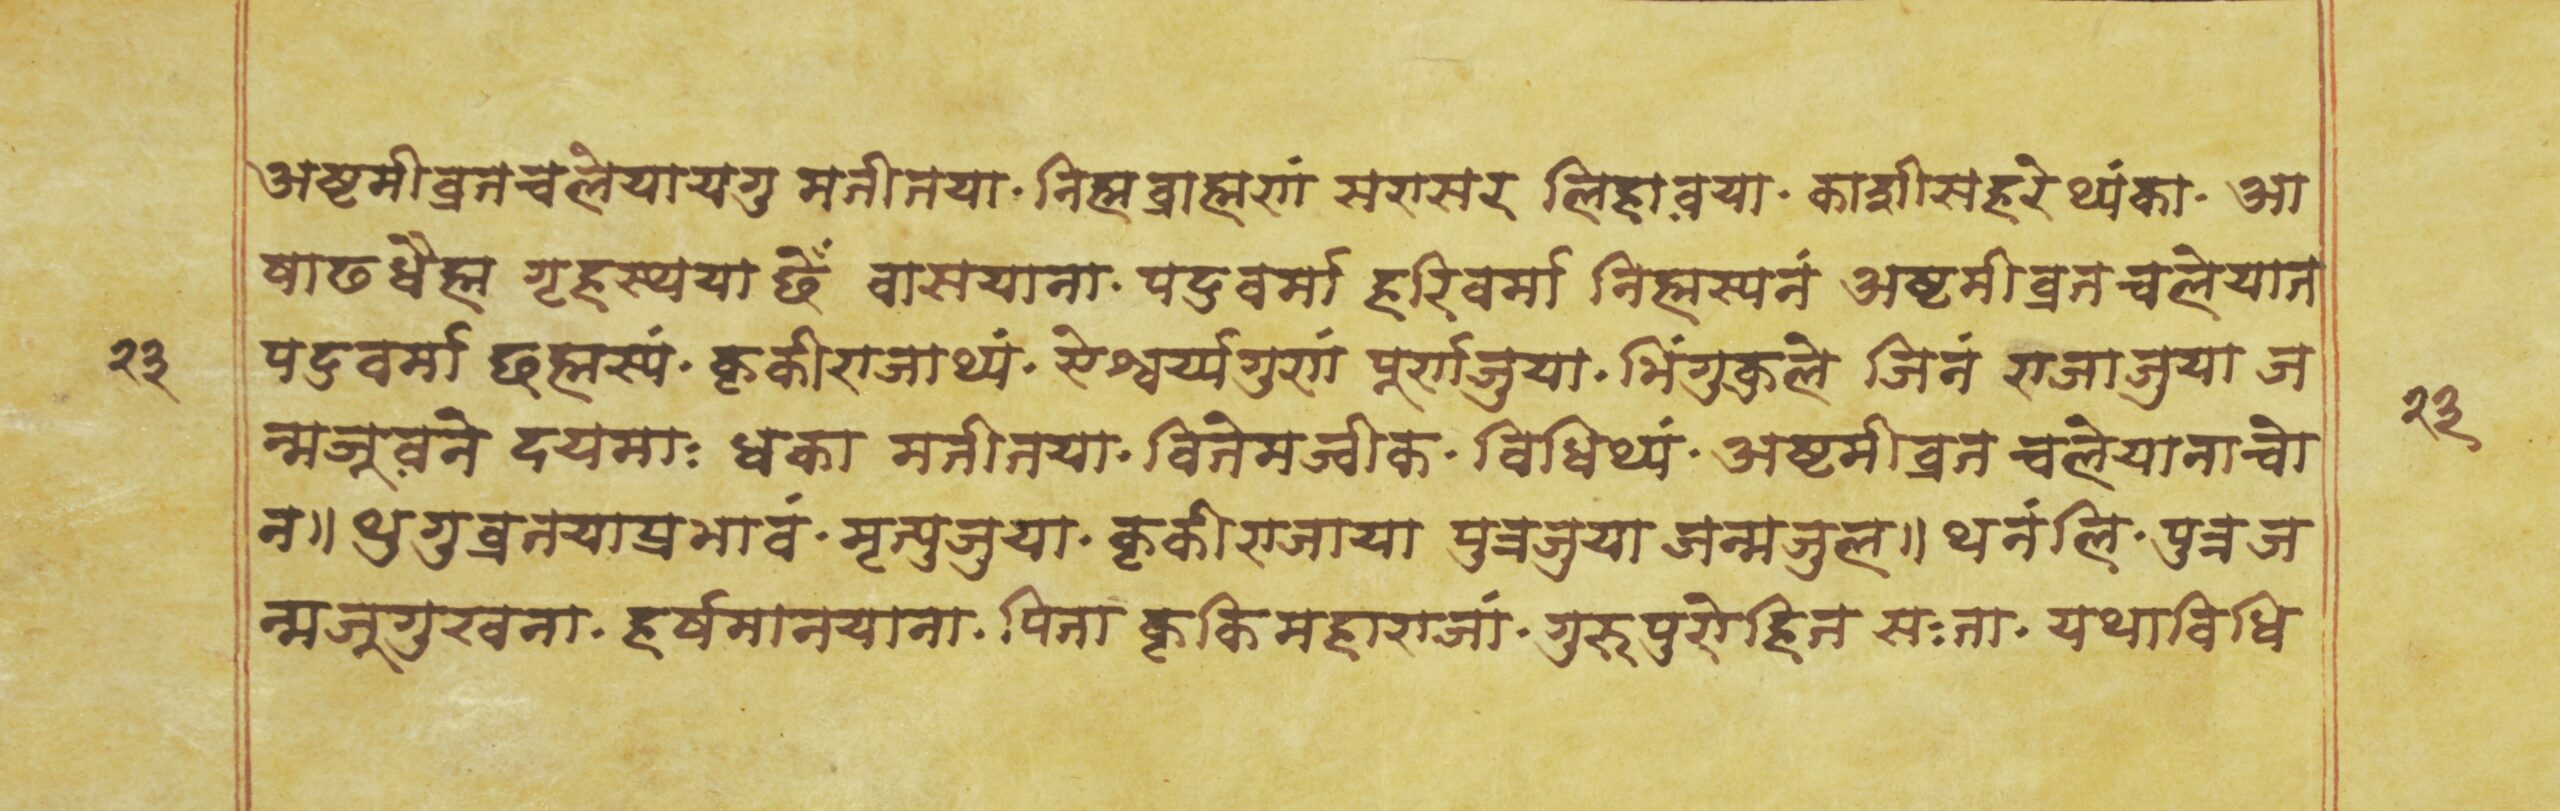 अष्टमीव्रतचलेयायगु मतीतया· निह्मब्राह्मणं सरासर लिहाव़या· काशीसहरे थ्यंका· आ
षाढधैह्म गृहस्थया छेँ वासयाना· पद्मवर्मा हरिवर्मा निह्मस्यनं अष्टमीव्रतचलेयात
२३
पद्मवर्मा छह्मस्यं· कृकीराजाथ्यं· ऐश्वर्य्यगुणं पूर्णजुया· भिंगुकुले जिनं राजाजुया ज
२३
न्मजूव़ने दयमाः धका मतीतया· वितेमज्वीक· विधिथ्यं· अष्टमीव्रत चलेयानाचो
न॥ थुगुव्रतयाप्रभावं· मृत्युजुया· कृकीराजाया पुत्रजुया जन्मजुल॥ थनंलि· पुत्रज
न्मजूगुखवना· हर्षमानयाना· पिता कृकिमहाराजां· गुरुपुरोहित सःता· यथाविधि